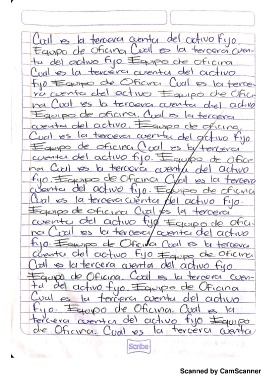 Cual es la tercera cuenta del activo fijo.
Equipo de Oficina Cual es la tercera cuen-
ta del activo fijo. Equipo de oficina
Cual es la tercera cuenta del activo
fijo. Equipo de oficina. Cual es la terce-
ra cuenta del activo fijo. Equipo de Ofici-
na Cual es la tercera cuenta del activo
fijo Equipo de oficina. Cual es la tercera
cuenta del activo fijo. Equipo de oficina.
Cual es la tercera cuenta del activo fijo.
Equipo de Oficina Cual es la tercera
cuenta del activo fijo. Equipo de Ofici-
na Cual es la tercera cuenta del activo
fijo. Equipo de Oficina Cual es la tercera
cuenta del activo fijo. Equipo de oficina
Cual es la tercera cuenta del activo fijo.
Equipo de Oficina Cual es la tercera
cuenta del activo fijo Equipo de ofici
na Cual es la tercera cuenta del activo
fijo. Equipo de Oficina Cual es la tercera
cuenta del activo fijo Equipo de Oficina.
Cual es la tercera cuenta del activo fijo
Equipo de Oficina Cual es la tercera cuen-
ta del activo fijo. Equipo de Oficina
Cual es la tercera cuenta del activo
fijo Equipo de oficina. Cual es la
tercera cuenta del activo fijo Equipo
de Oficina. Cual es la tercera cuenta
Scribe
Scanned by CamScanner